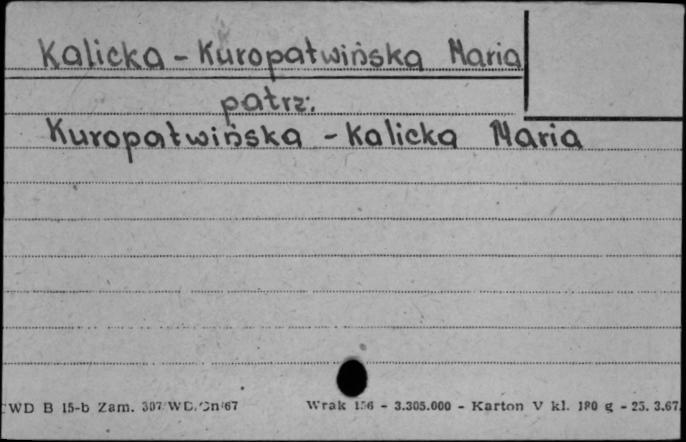 Kalicka - Kuropatwińska Maria
patrz:
Kuropatwińska - Kalicka Maria
CWD B 15-b Zam. 307/WD/Dn/67 Wrak 156 - 3.305.000 - Karton V kl. 180 g - 25. 3.67.